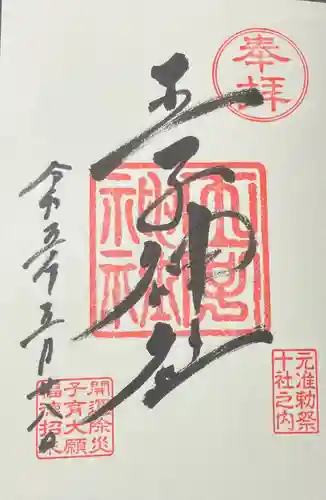 奉拝
王子神社
王子神社
令和五年五月廿八日
元准勅祭
十社之内
開運除災
子育大願
福徳招来